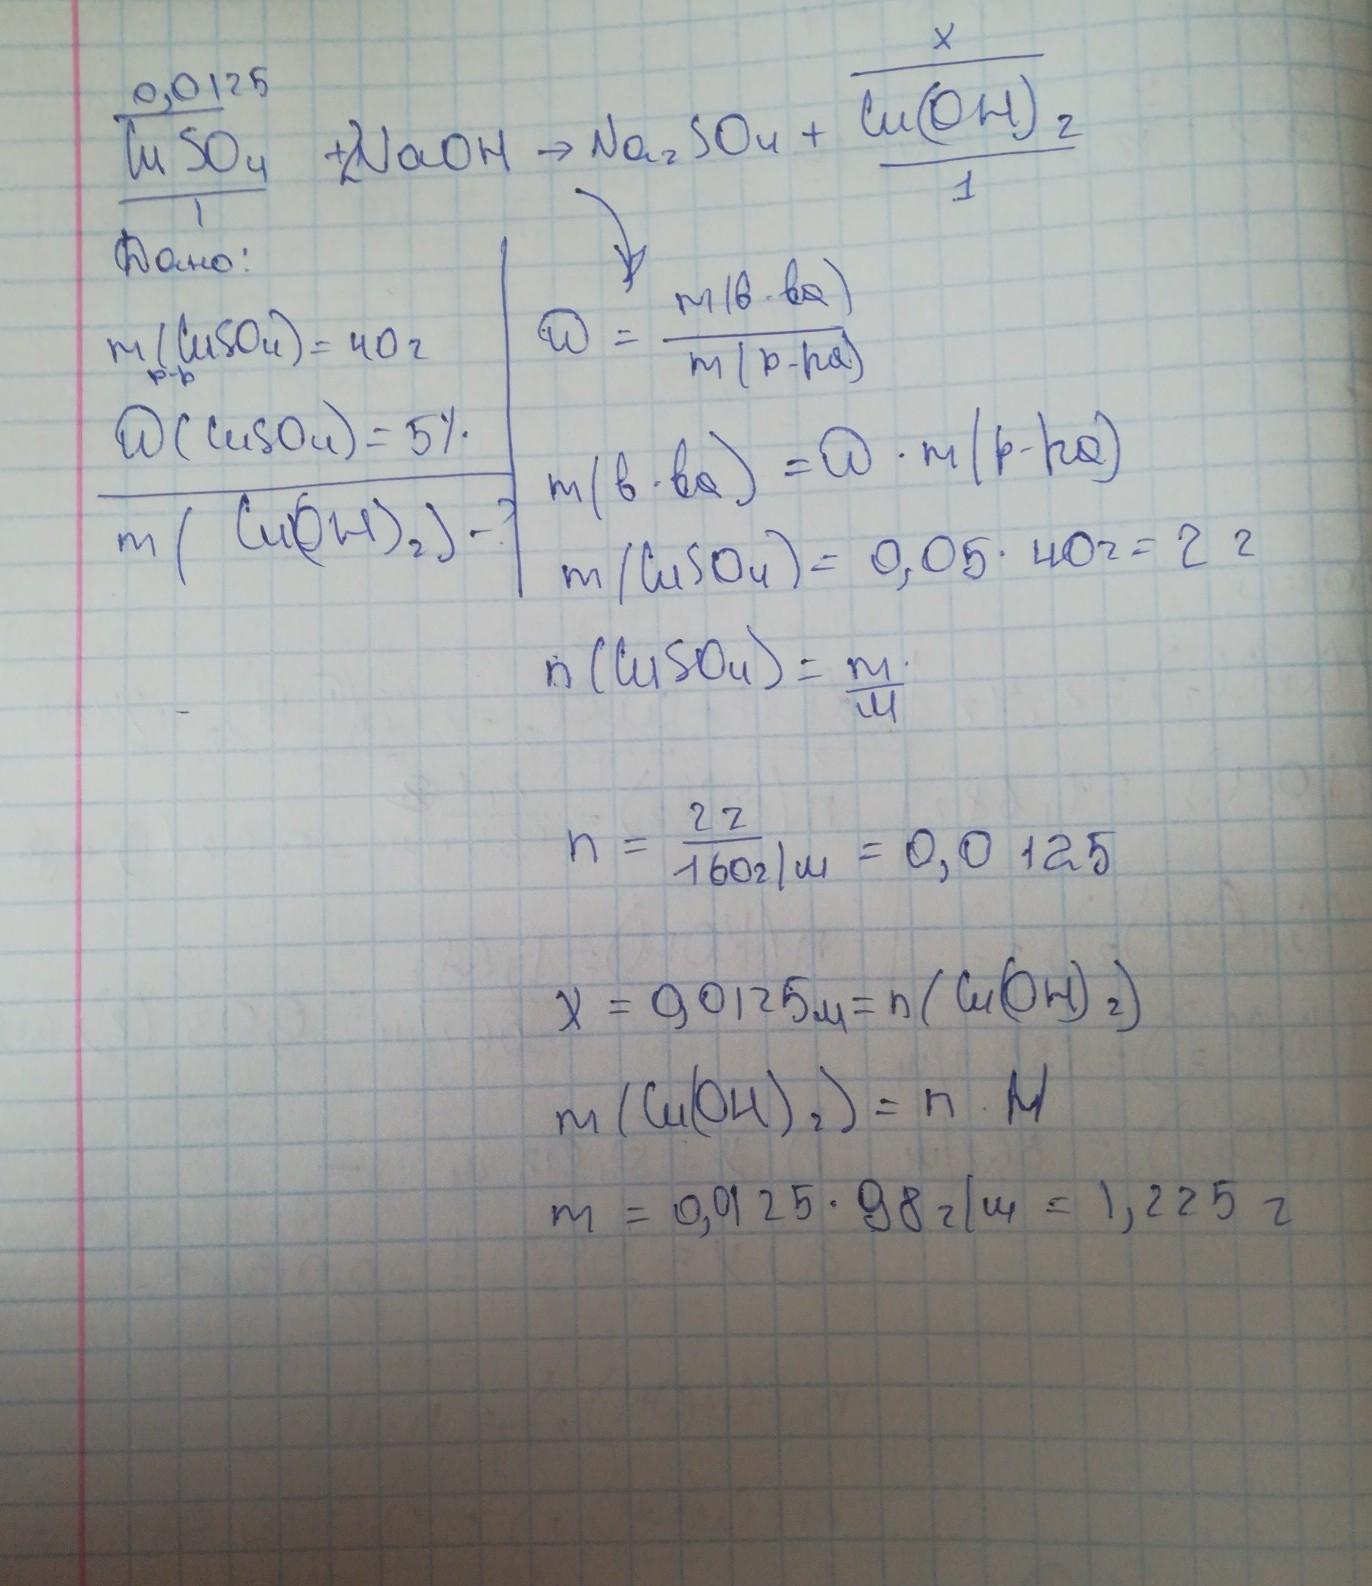 0,0125 x
CuSO₄ + 2NaOH → Na₂SO₄ + Cu(OH)₂
1 1
Дано:
m(CuSO₄) = 40г
р-р
ω(CuSO₄) = 5%.
m(Cu(OH)₂) - ?
ω = m(в-ва) / m(р-ра)
m(в-ва) = ω · m(р-ра)
m(CuSO₄) = 0,05 · 40г = 2 г
n(CuSO₄) = m / M
n = 2г / 160г/м = 0,0125
x = 0,0125м = n(Cu(OH)₂)
m(Cu(OH)₂) = n · M
m = 0,0125 · 98г/м = 1,225 г